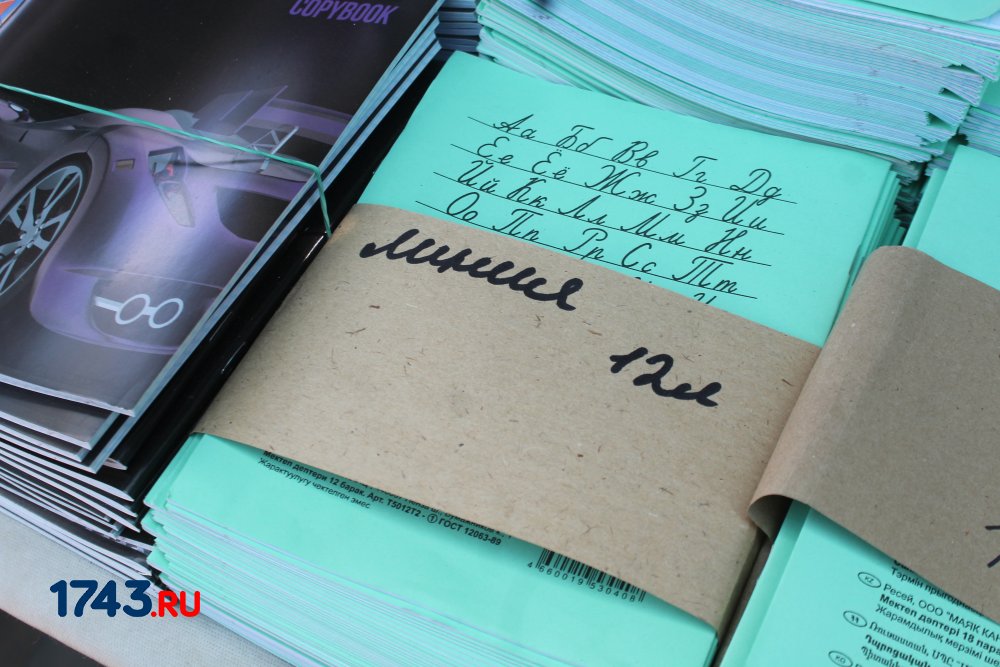 COPYBOOK
Аа Бб Вв Гг Дд
Ее Ёё Жж Зз Ии
Йй Кк Лл Мм Нн
Оо Пп Рр Сс Тт
линия
12л
Мектеп дептери 12 барак. Арт. Т5012Т2 - ① ГОСТ 12063-89
Жарактуулугу чектелген эмес.
4 660019 530408
KZ Ресей, ООО "МАЯК
Мектеп дәптері 18
Жарамдылық мерзімі
Ռուսաստան,
KG
1743.RU